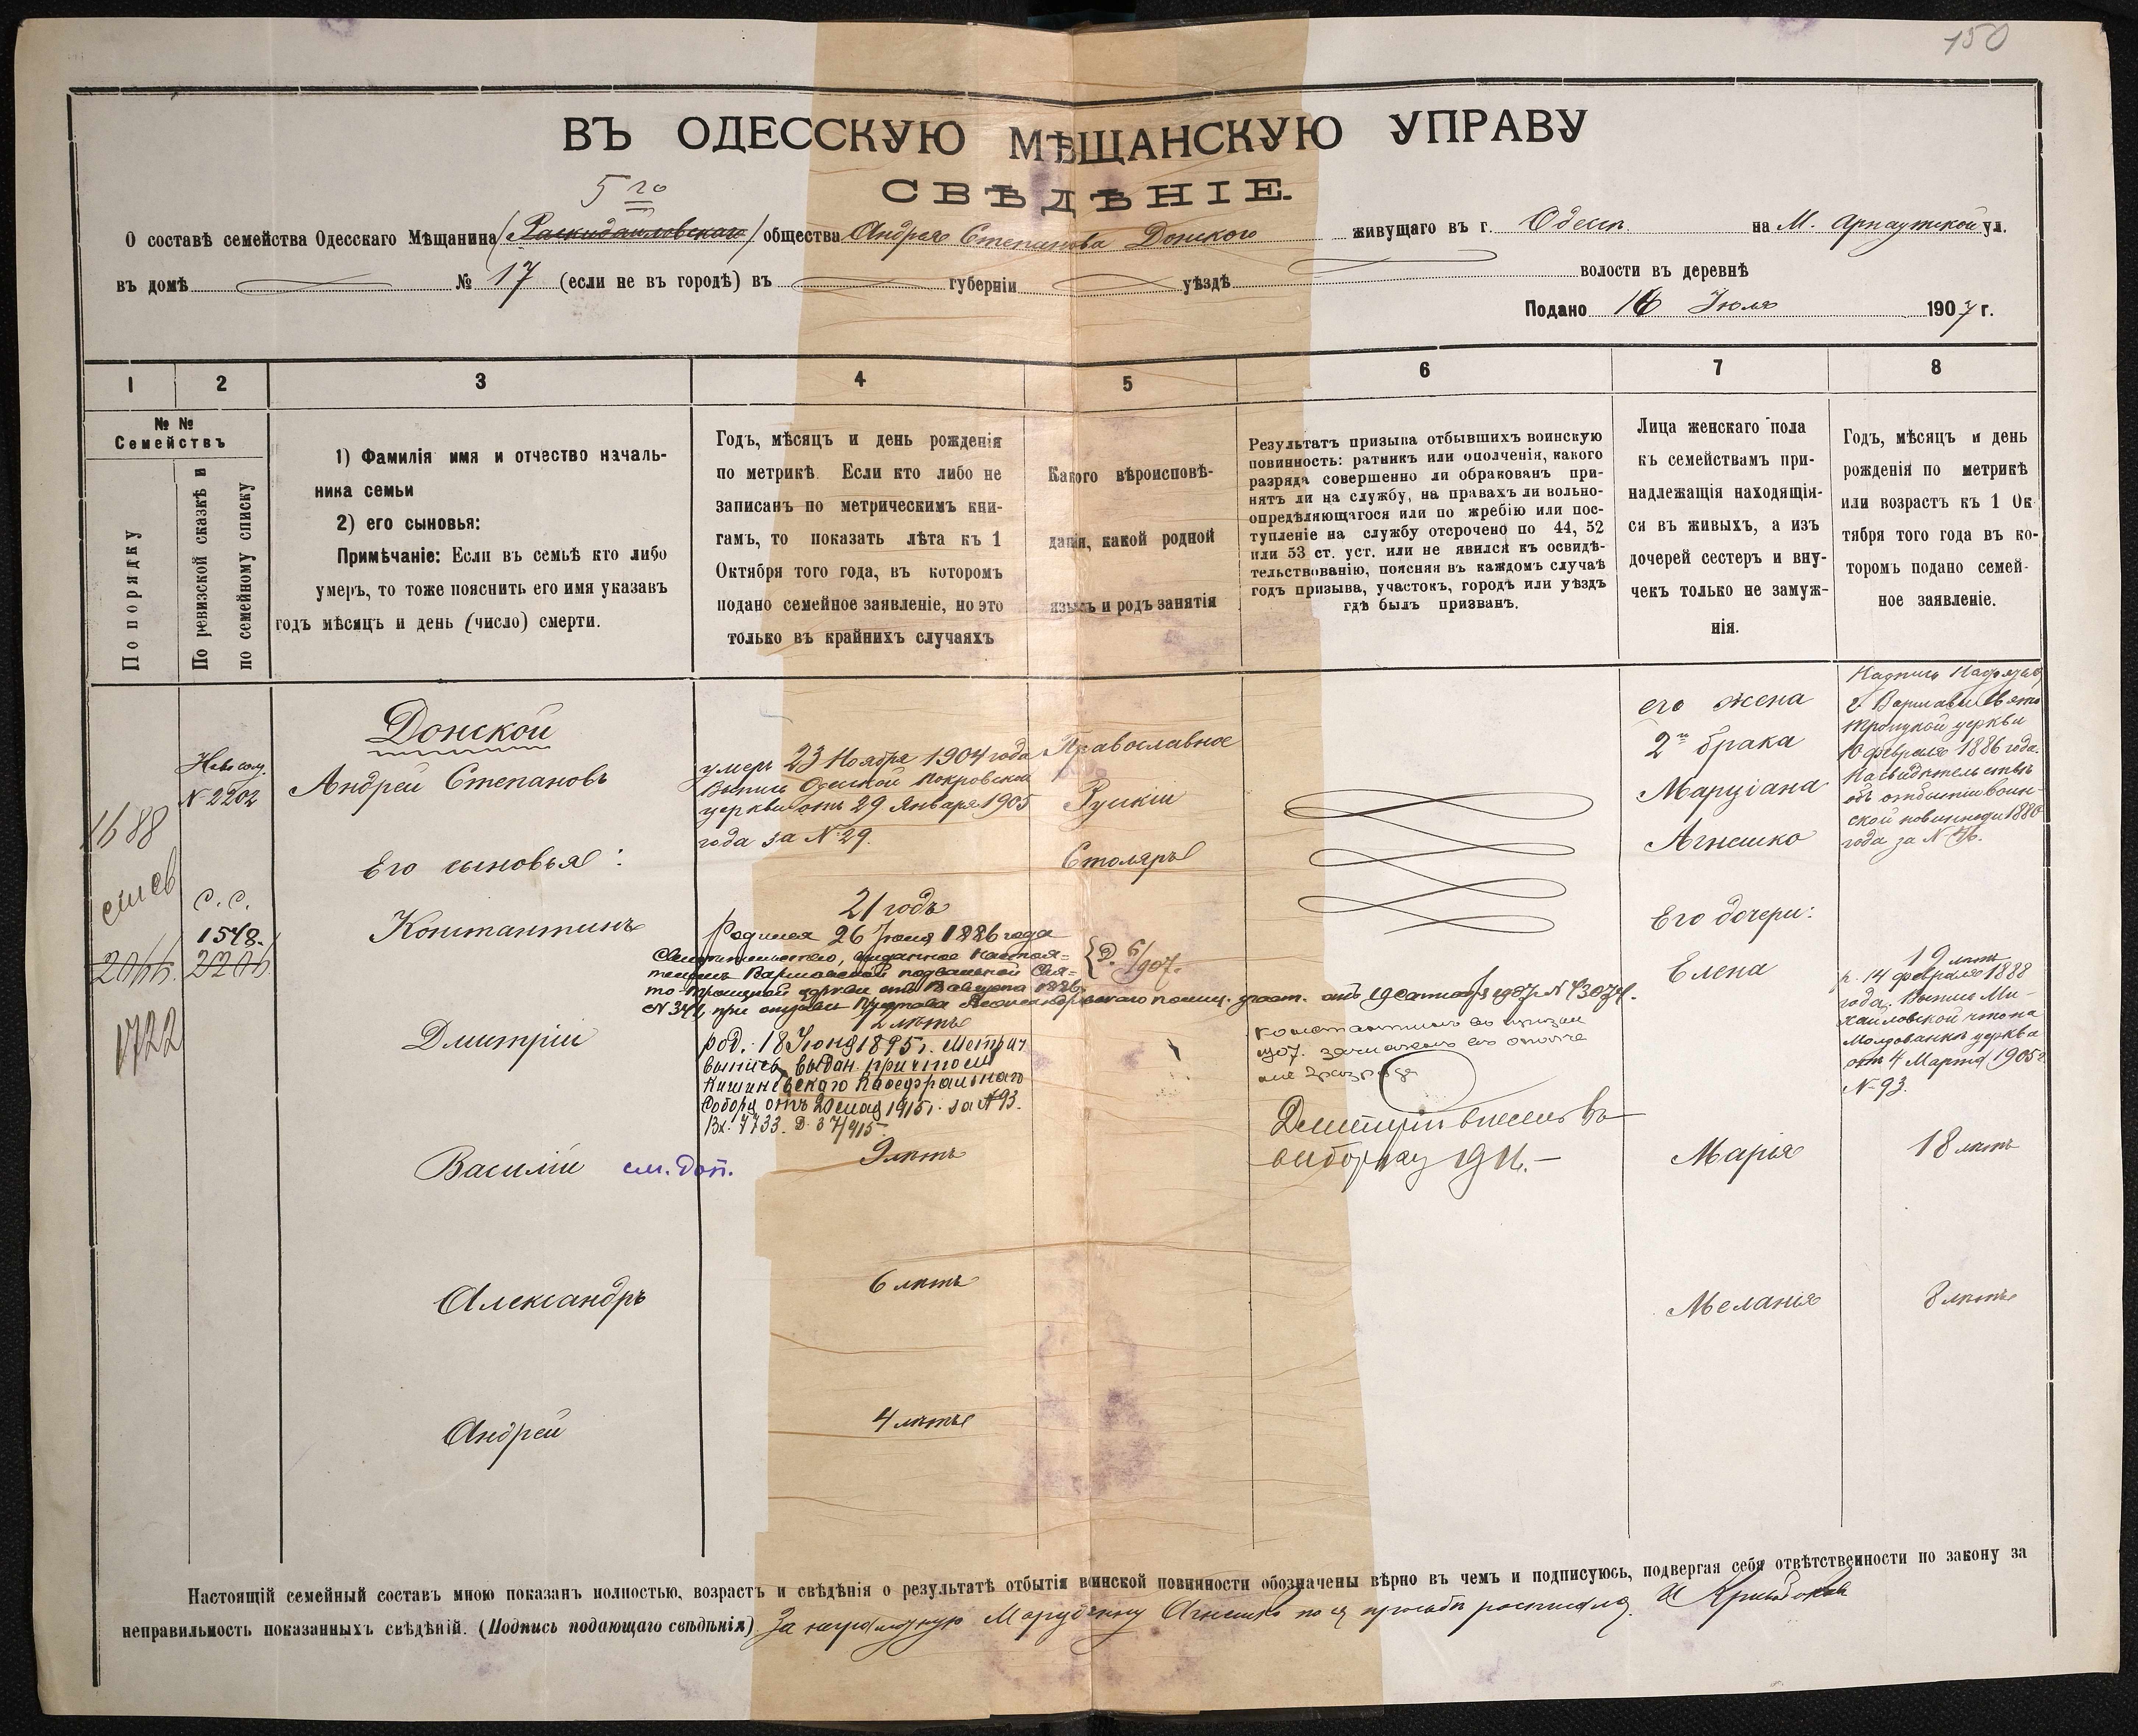 150
ВЪ ОДЕССКУЮ МѢЩАНСКУЮ УПРАВУ
СВѢДѢНІЕ.
5 го
О составѣ семейства Одесскаго Мѣщанина (Раскидайловскаго) общества Андрея Степанова Донского живущаго въ г. Одессѣ на М. Арнаутской ул.
въ домѣ № 17 (если не въ городѣ) въ губерніи уѣздѣ волости въ деревнѣ
Подано 16 Іюля 1907 г.
1 2 3 4 5 6 7 8
№ №
Семействъ
По порядку
По ревизской сказкѣ и
по семейному списку
1) Фамилія имя и отчество началь-
ника семьи
2) его сыновья:
Примѣчаніе: Если въ семьѣ кто либо
умеръ, то тоже пояснить его имя указавъ
годъ мѣсяцъ и день (число) смерти.
Годъ, мѣсяцъ и день рожденія
по метрикѣ. Если кто либо не
записанъ по метрическимъ кни-
гамъ, то показать лѣта къ 1
Октября того года, въ которомъ
подано семейное заявленіе, но это
только въ крайнихъ случаяхъ
Какого вѣроисповѣ-
данія, какой родной
языкъ и родъ занятія
Результатъ призыва отбывшихъ воинскую
повинность: ратникъ или ополченія, какого
разряда совершенно ли обракованъ при-
нятъ ли на службу, на правахъ ли вольно-
опредѣляющагося или по жребію или пос-
тупленіе на службу отсрочено по 44, 52
или 53 ст. уст. или не явился къ освидѣ-
тельствованію, поясняя въ каждомъ случаѣ
годъ призыва, участокъ, городъ или уѣздъ
гдѣ былъ призванъ.
Лица женскаго пола
къ семействамъ при-
надлежащія находящія-
ся въ живыхъ, а изъ
дочерей сестеръ и вну-
чекъ только не замуж-
нія.
Годъ, мѣсяцъ и день
рожденія по метрикѣ
или возрастъ къ 1 Ок
тября того года въ ко-
торомъ подано семей-
ное заявленіе.
1688
2066.
1722
№ 2202
с. с.
1548.
2206
Донской
Андрей Степановъ
Его сыновья:
Константинъ
Дмитрій
Василій см. доп.
Александръ
Андрей
умеръ 23 Ноября 1904 года
Выпись Одесской Покровской
церкви отъ 29 Января 1905
года за № 29.
21 годъ
Родился 26 Іюня 1886 года
№ 341, при отзывѣ Пристава Александровскаго полиц. участ. отъ 19 Сентября 1907 г. № 43074.
12 лѣтъ
род. 18 Іюня 1895 г. Метрич.
выпись выдан. причтомъ
Кишиневскаго Кафедральнаго
Собора отъ 20 мая 1915 г. за № 93.
Вх. 7733. Д. 37/915
9 лѣтъ
6 лѣтъ
4 лѣтъ
Православное
Рускій
Столяръ
Д. 6/907.
Константинъ въ призыв
1907. зачисленъ въ ополче
ніе 2 разряда
Дмитрій внесенъ въ
выборку 1916.
его жена
2го брака
Марціана
Агнешко
Его дочери:
Елена
Марія
Меланія
Надпись
г. Варшавы Свято
Троицкой церкви
10 февраля 1886 года.
На свидѣтельствѣ
объ отбытіи воин-
ской повинности 1880
года за № 76.
19 лѣтъ
р. 14 февраля 1888
года. Выпись Ми-
хайловской что на
Молдованкѣ церкви
отъ 4 Марта 1905 г.
№ 93.
18 лѣтъ
8 лѣтъ
Настоящій семейный составъ мною показанъ полностью, возрастъ и свѣдѣнія о результатѣ отбытія воинской повинности обозначены вѣрно въ чемъ и подписуюсь, подвергая себя отвѣтственности по закону за
неправильность показанныхъ свѣдѣній. (Подпись подающаго свѣдѣнія) За неграмотную Агнешко по ея просьбѣ росписался.